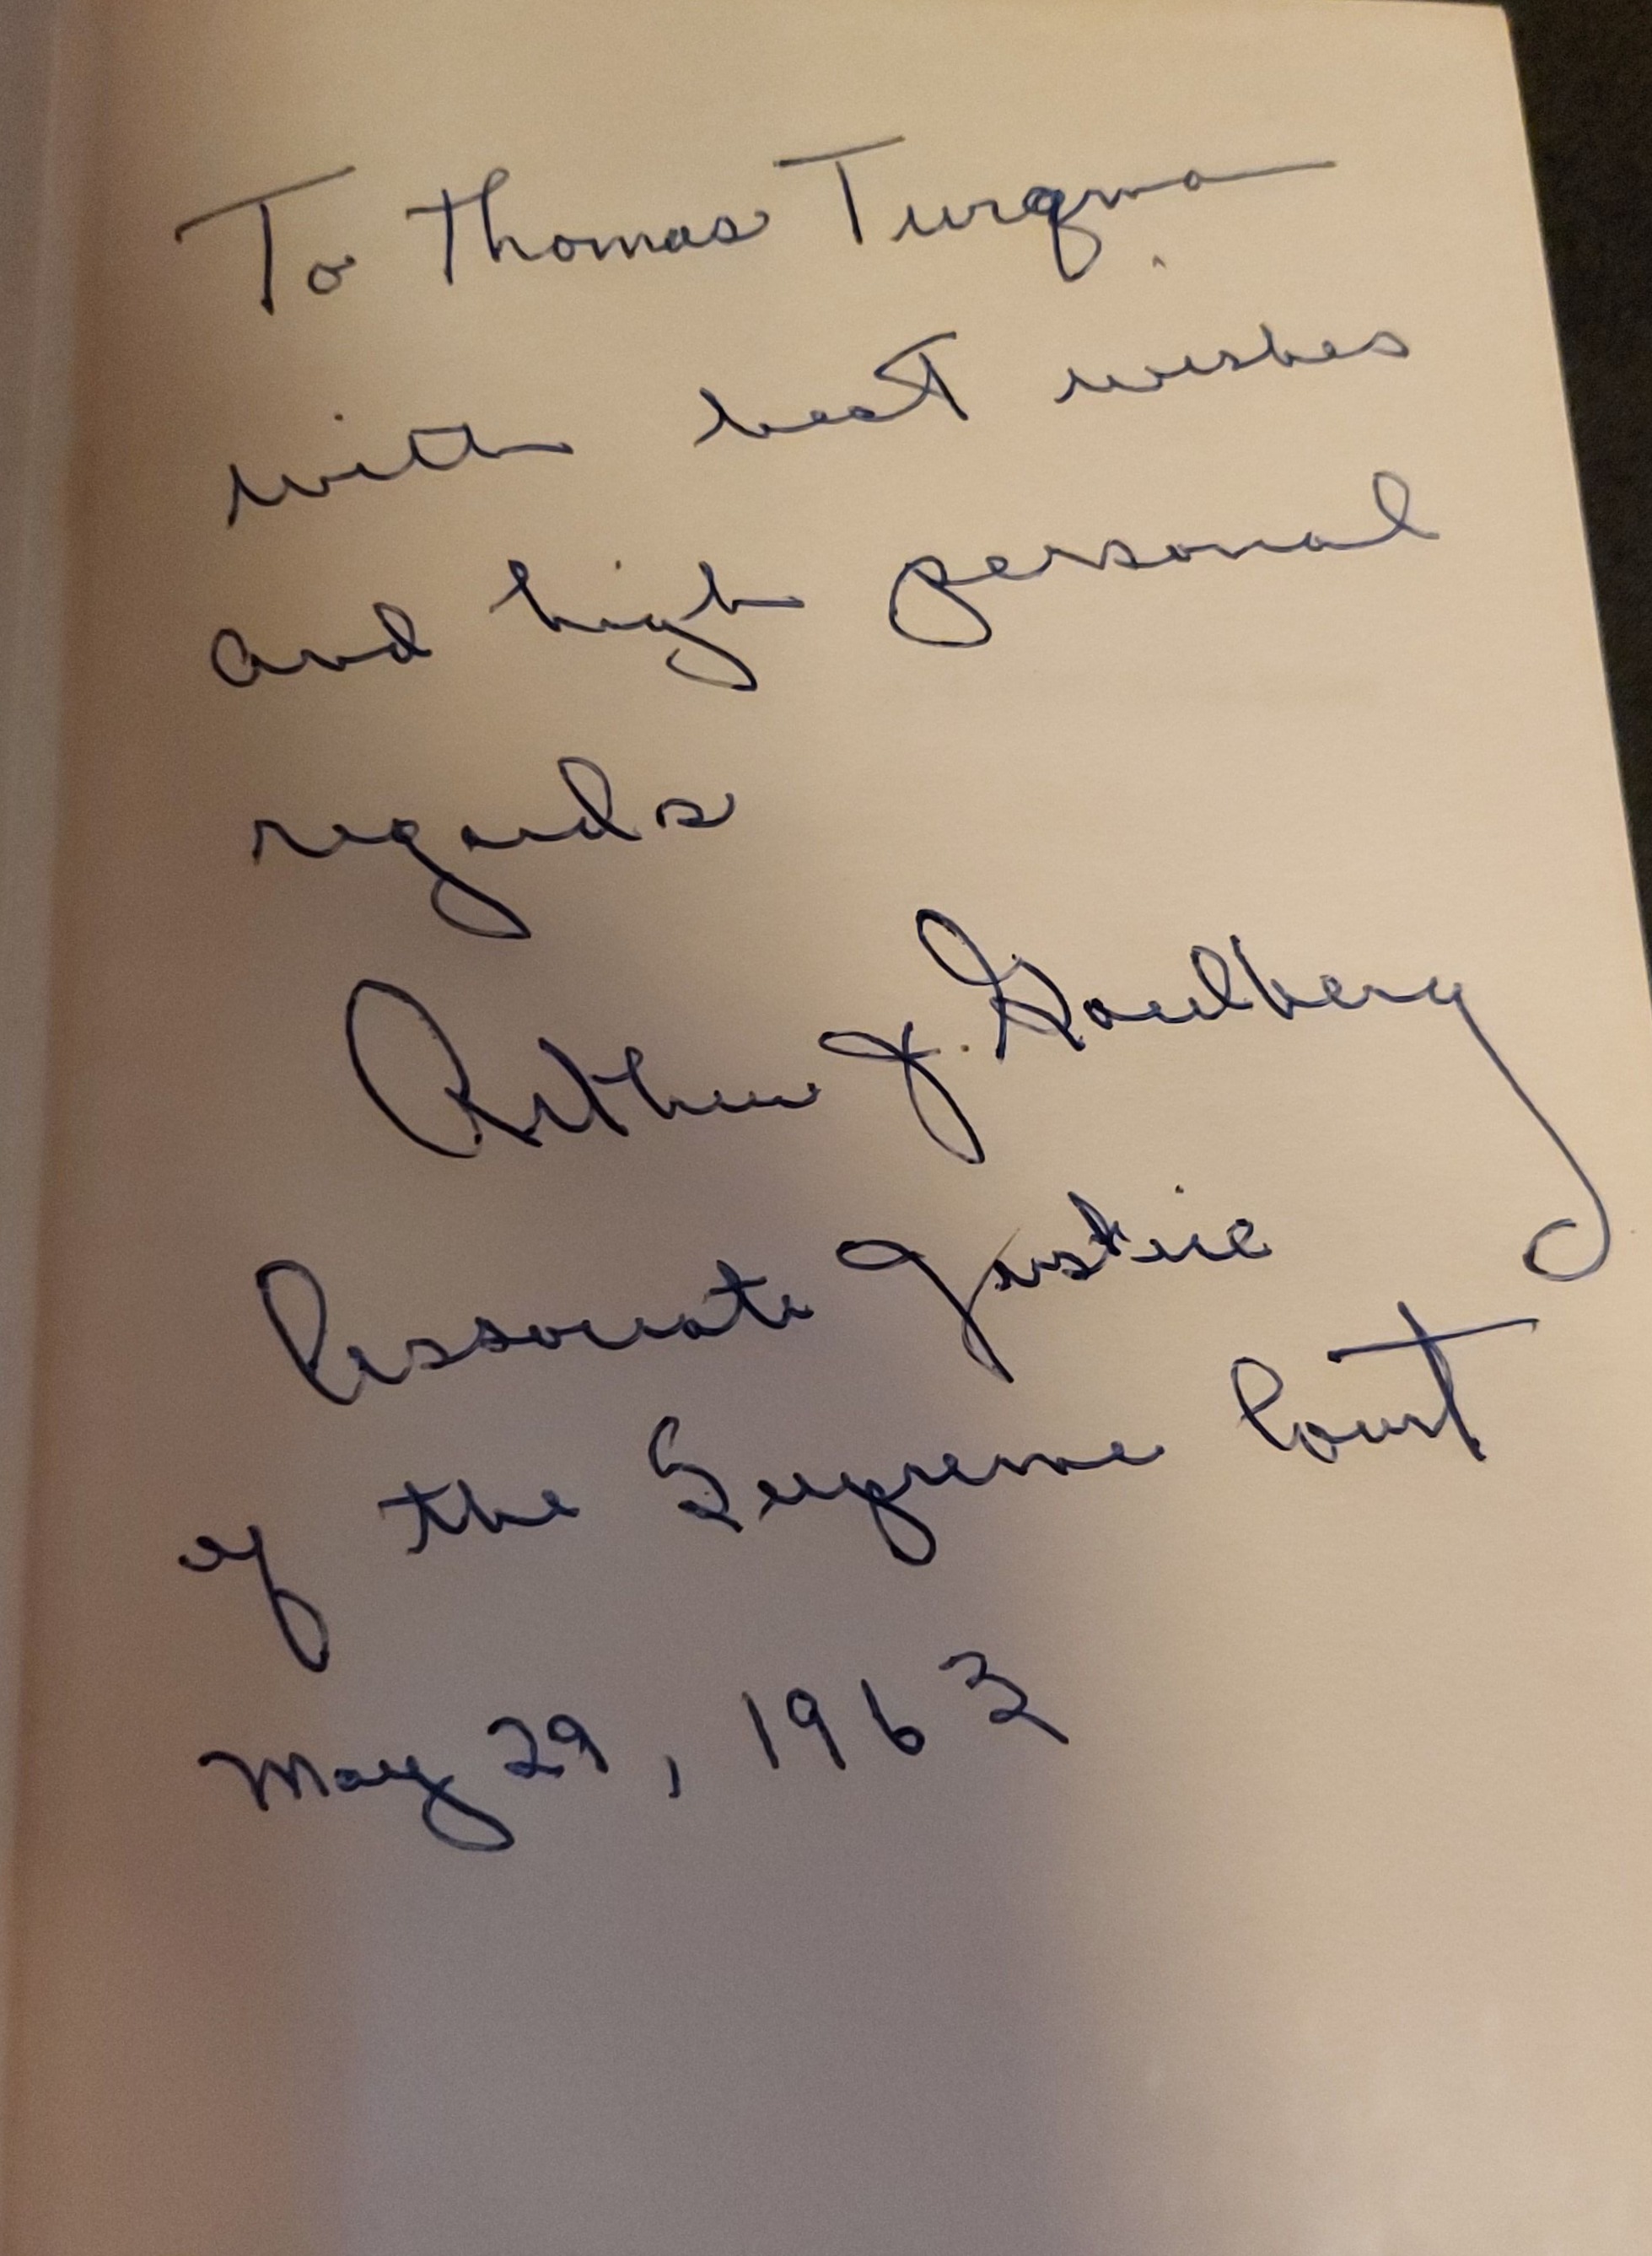 To Thomas Turqman
with best wishes
and high personal
regards
Arthur J. Goldberg
Associate Justice
of the Supreme Court
May 29, 1963